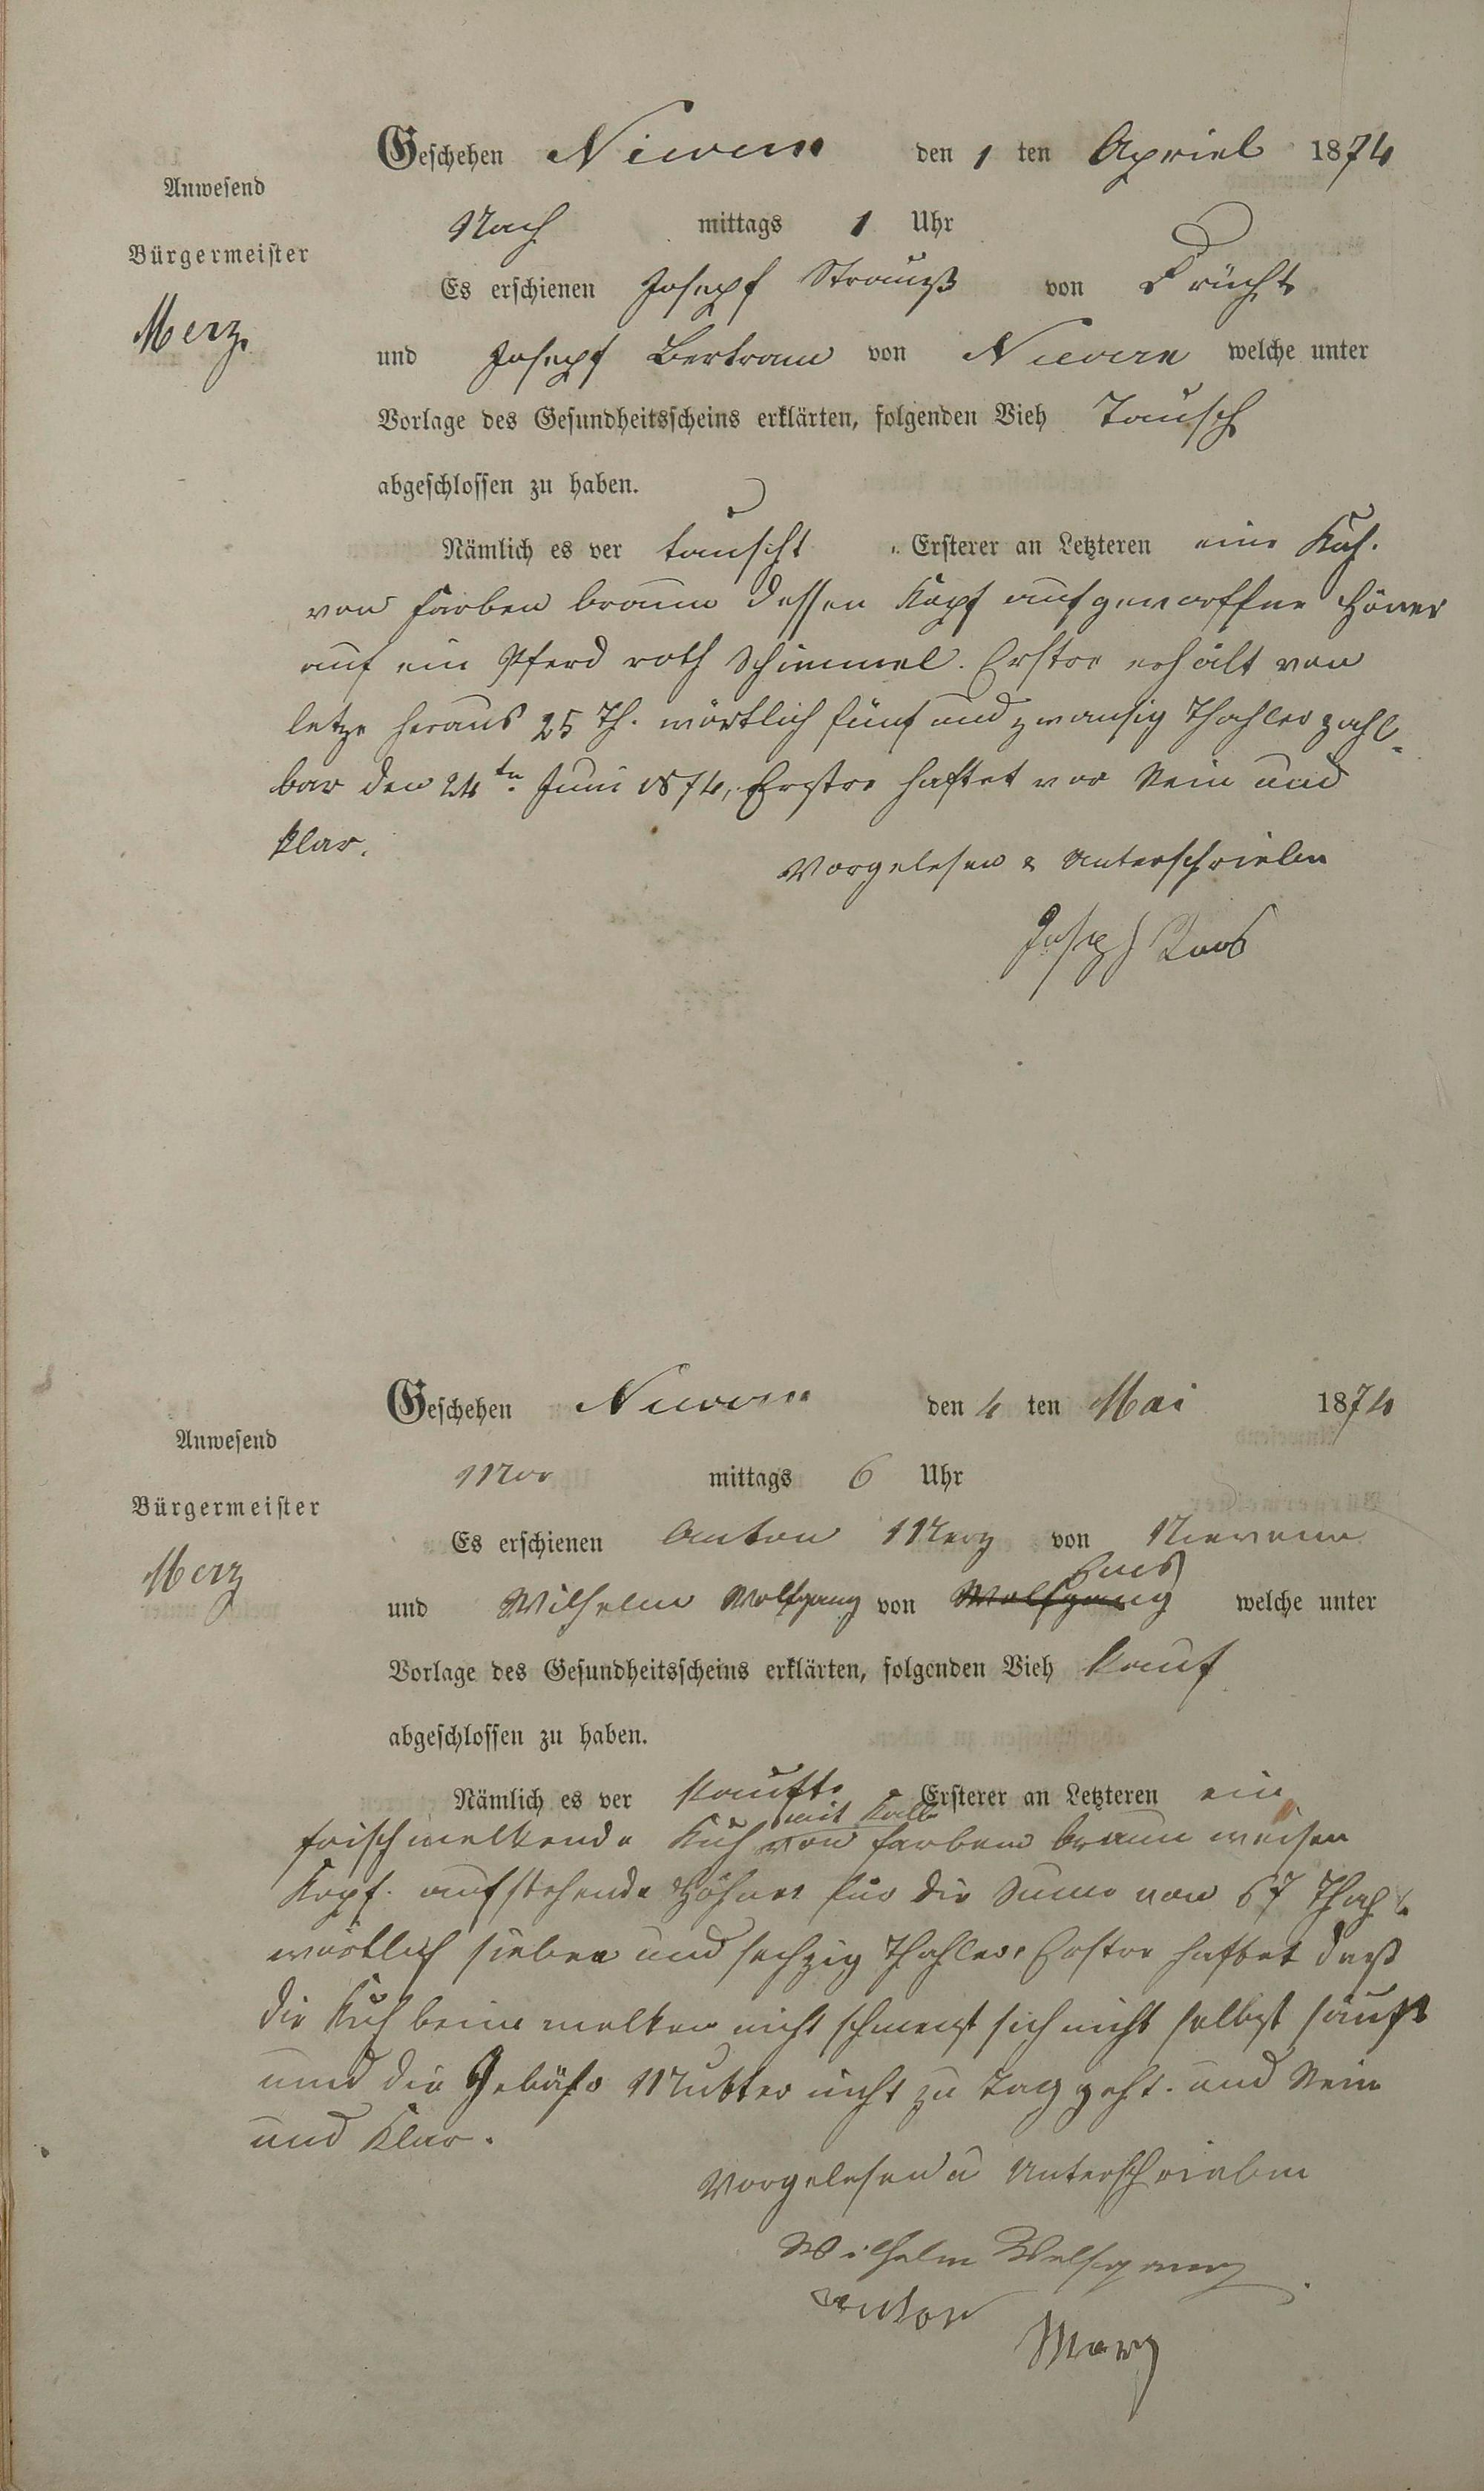 Geschehen Nievern den 1 ten Apriel 1874
Anwesend
Nach mittags 1 Uhr
Bürgermeister
Es erschienen Joseph Strauß von Frücht
Merz.
und Joseph Bertram von Nievern welche unter
Vorlage des Gesundheitsscheins erklärten, folgenden Vieh Tausch
abgeschlossen zu haben.
Nämlich es ver tauscht Ersterer an Letzteren eine Kuh.
von Farben braun dessen Kopf aufgeworffne Hörner
auf ein Pferd roth Schimmel. Erster erhält von
letze heraus 25 Th. wörtlich fünf und zwansig Thahler zahl-
bar den 24tn Juni 1874, Erster haftet vor Rein und
klar.
Vorgelesen & Unterschrieben
Joseph
Geschehen Nievern den 4 ten Mai 1874
Anwesend
Vor mittags 6 Uhr
Bürgermeister
Es erschienen Anton Merz von Nievern
Merz
Ems
und Wilhelm Wolfgang von Wolfgang welche unter
Vorlage des Gesundheitsscheins erklärten, folgenden Vieh Kauf
abgeschlossen zu haben.
Nämlich es ver kaufte Ersterer an Letzteren ein
mit Kalb
frisch melkende Kuh von farben braun weisen
Kopf. aufstehende Höhner für die Sume von 67 Thahl.
wörtlich sieben und sechzig Thahler, Erster haftet daß
die Kuh beim melken nicht schmeist sich nicht selbst säuft
und die Gebähr Mutter nicht zu Tag geht. und Rein
und Klar.
Vorgelesen u Unterschrieben
Wilhelm Wolfgang
Anton Merz